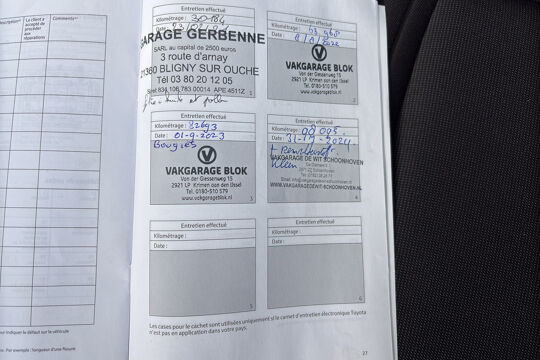 Description*
Le client a
accepté de
procéder
aux
réparations
Comments**
Entretien effectué
Kilométrage :
Date :
GARAGE GERBENNE
SARL au capital de 2500 euros
3 route d'arnay
21360 BLIGNY SUR OUCHE
Tél 03 80 20 12 05
1
Entretien effectué
Kilométrage :
Date :
VAKGARAGE BLOK
Van der Giessenweg 15
2921 LP Krimpen aan den IJssel
Tel. 0180-510 579
www.vakgarageblok.nl
2
Entretien effectué
Kilométrage : 82693
Date : 01-9-2023
Bougies
VAKGARAGE BLOK
Van der Giessenweg 15
2921 LP Krimpen aan den IJssel
Tel. 0180-510 579
www.vakgarageblok.nl
3
Entretien effectué
Kilométrage : 98 095
Date :
VAKGARAGE DE WIT SCHOONHOVEN
WWW.VAKGARAGEDEWIT-SCHOONHOVEN.NL
4
Entretien effectué
Kilométrage :
Date :
5
Entretien effectué
Kilométrage :
Date :
6
Les cases pour le cachet sont utilisées uniquement si le carnet d'entretien électronique Toyota
n'est pas en application dans votre pays.
27
our indiquer le défaut sur le véhicule
Par exemple : longueur d'une fissure